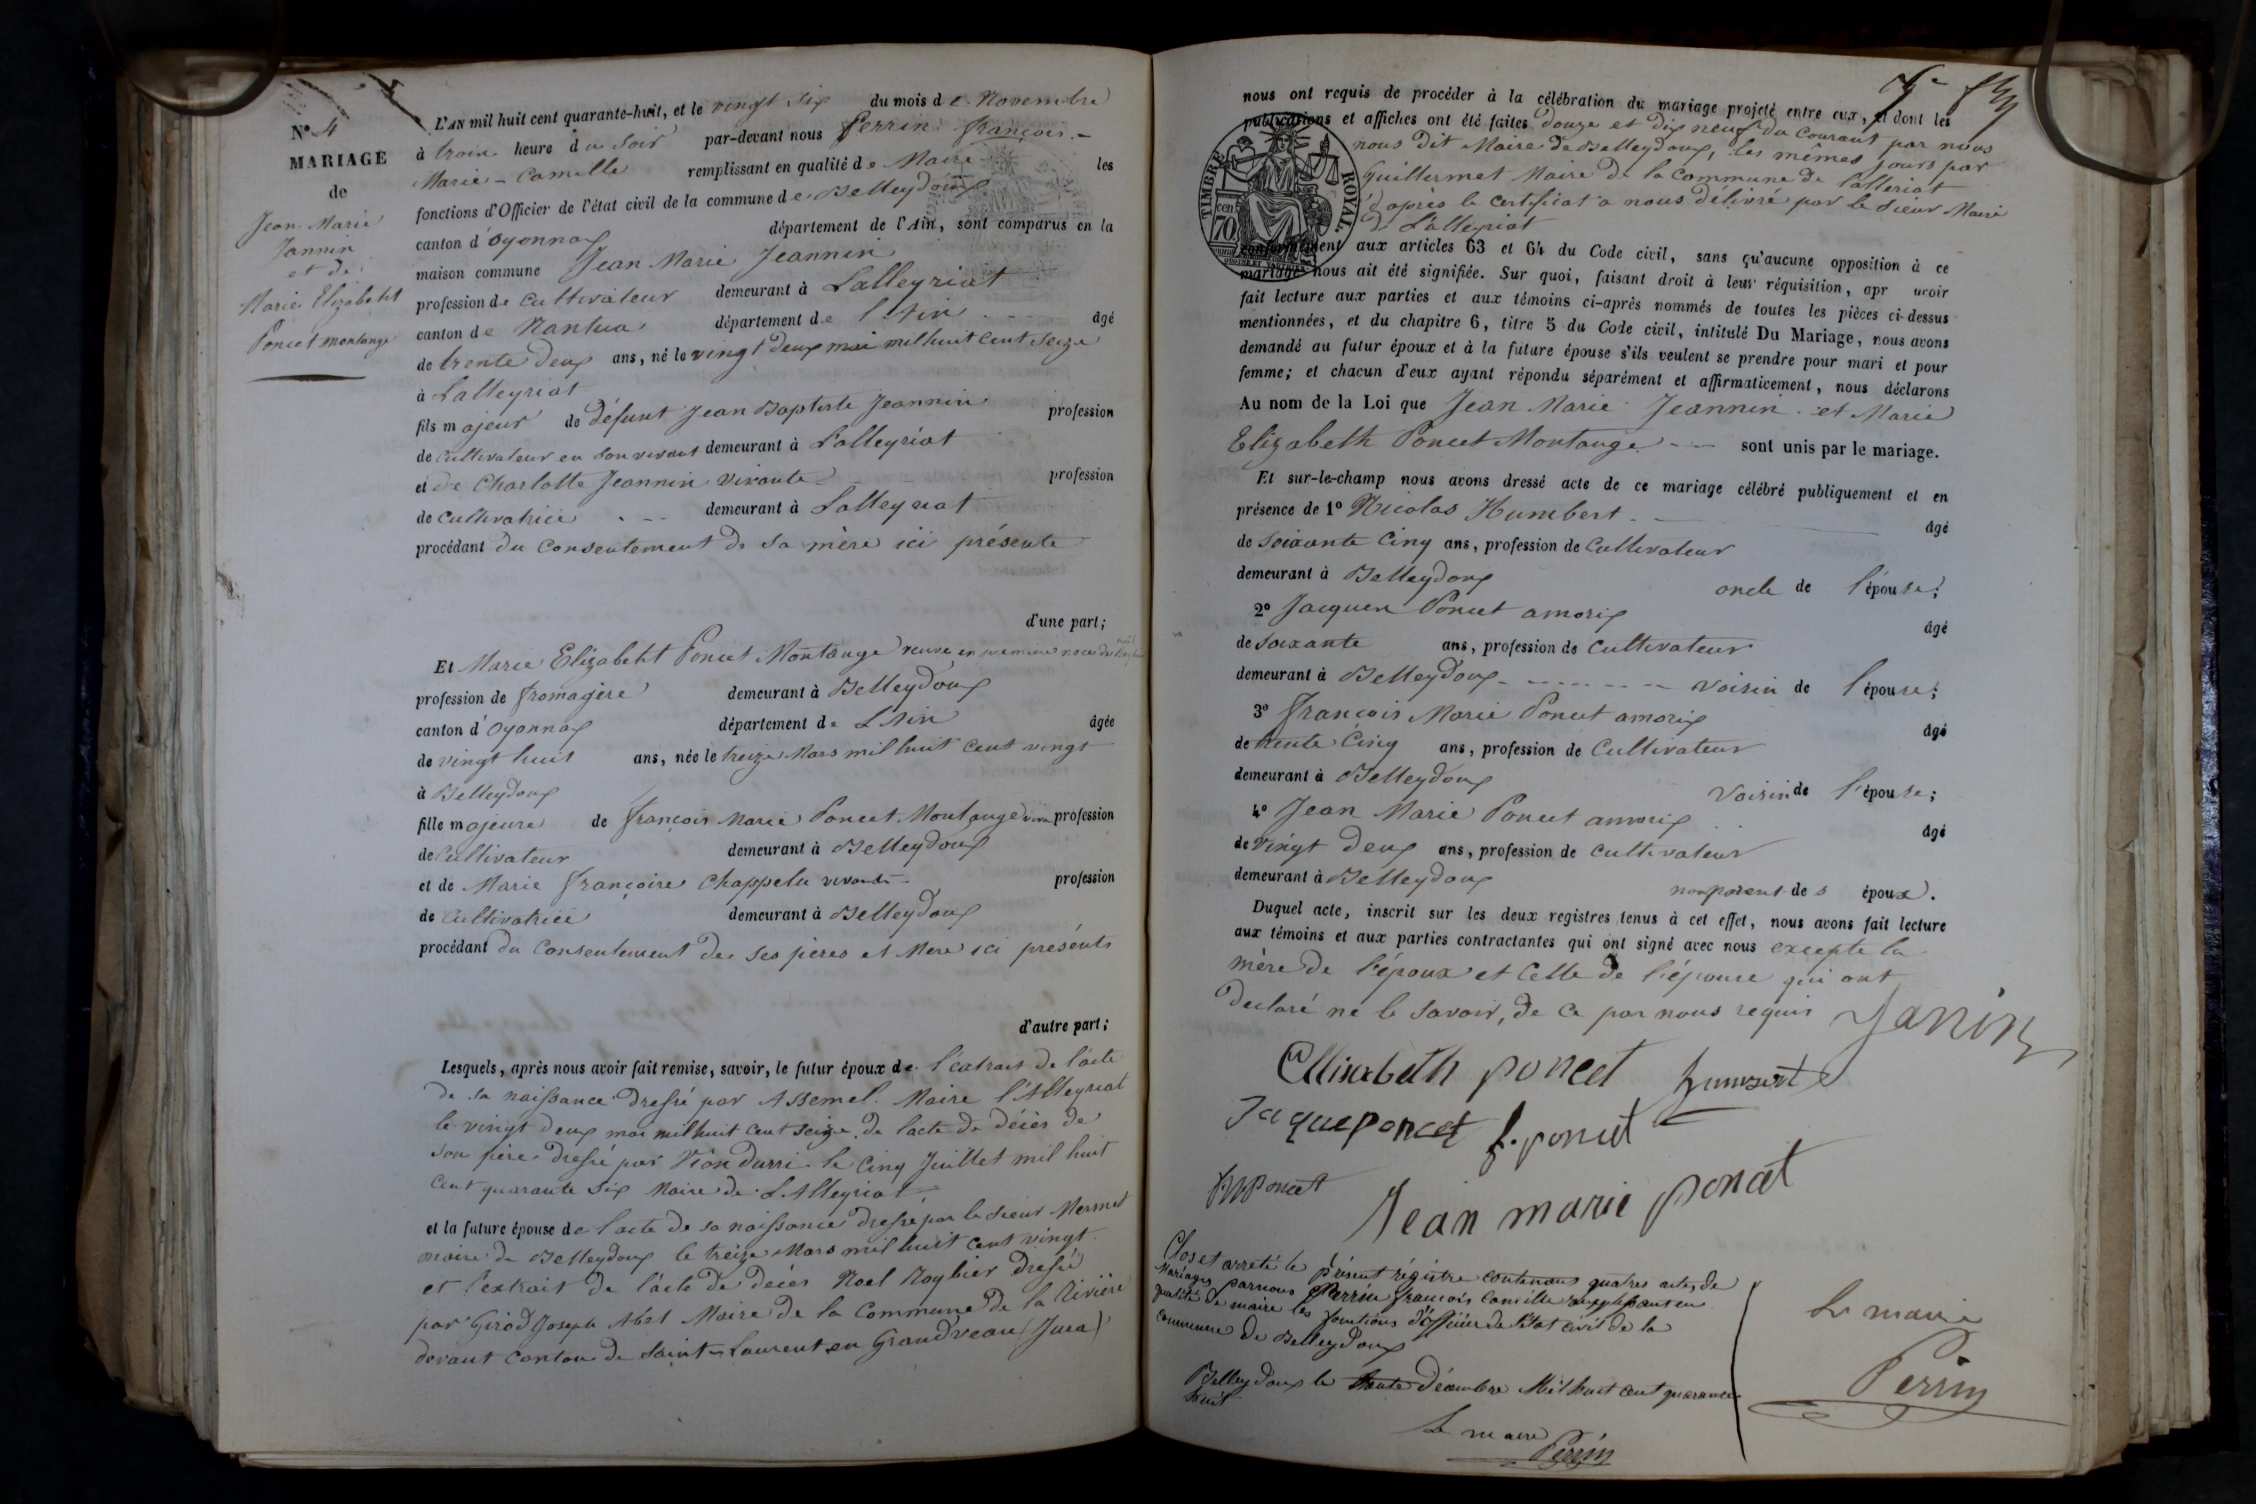 N° 4
MARIAGE
de
Jean Marie
Jannin
et de
Marie Elizabeht
Poncet montange
L'AN mil huit cent quarante-huit, et le vingt six du mois de Novembre
à trois heure du Soir par-devant nous Perrin françois
Marie-Camille remplissant en qualité de Maire les
fonctions d'Officier de l'état civil de la commune de Belleydoux
canton d'Oyonnax département de l'Ain, sont comparus en la
maison commune Jean Marie Jeannin
profession de Cultivateur demeurant à Lalleyriat
canton de Nantua département de l'Ain âgé
de trente deux ans, né le vingt deux mai mil huit cent seize
à Lalleyriat
fils majeur de défunt Jean Baptiste Jeannin profession
de Cultivateur en son vivant demeurant à Lalleyriat
et de Charlotte Jeannin vivante profession
de Cultivatrice demeurant à Lalleyriat
procédant du Consentement de sa mère ici présente
d'une part;
Et Marie Elizabeht Poncet Montange veuve en premiere noces de
profession de fromagère demeurant à Belleydoux
canton d'Oyonnax département de L'Ain âgée
de vingt huit ans, née le treize Mars mil huit cent vingt
à Belleydoux
fille majeure de françois Marie Poncet Montange profession
de Cultivateur demeurant à Belleydoux
et de Marie françoise Chappelu vivante profession
de Cultivatrice demeurant à Belleydoux
procédant du Consentement des ses pères et Mere ici présents
d'autre part;
Lesquels, après nous avoir fait remise, savoir, le futur époux de l'extrait de l'acte
de sa naissance dressé par Assemel Maire l'Alleyriat
le vingt deux mai mil huit cent seize, de l'acte de décès de
son père dressé par le Cinq Juillet mil huit
cent quarante six Maire de L'Alleyriat
et la future épouse de l'acte de sa naissance dressé par le sieur Mermet
maire de Belleydoux le treize Mars mil huit cent vingt
et l'extrait de l'acte de décès Noel Roybier dressé
par Girod Joseph Abel Maire de la Commune de la Rivière
devant Canton de Saint-Laurent en Grandveau (Jura)
nous ont requis de procéder à la célébration du mariage projeté entre eux, et dont les
publications et affiches ont été faites douze et dix neuf du Courant par nous
nous dit Maire de Belleydoux, les mêmes jours par
Guillermet Maire de la Commune de Lalleriat
d'après le certificat a nous délivré par le sieur Maire
de Lalleyriat
TIMBRE ROYAL
70 cen
conformément aux articles 63 et 64 du Code civil, sans qu'aucune opposition à ce
mariage nous ait été signifiée. Sur quoi, faisant droit à leur réquisition, apr avoir
fait lecture aux parties et aux témoins ci-après nommés de toutes les pièces ci-dessus
mentionnées, et du chapitre 6, titre 5 du Code civil, intitulé Du Mariage, nous avons
demandé au futur époux et à la future épouse s'ils veulent se prendre pour mari et pour
femme; et chacun d'eux ayant répondu séparément et affirmativement, nous déclarons
Au nom de la Loi que Jean Marie Jeannin et Marie
Elizabeth Poncet Montange sont unis par le mariage.
Et sur-le-champ nous avons dressé acte de ce mariage célébré publiquement et en
présence de 1° Nicolas Humbert âgé
de soixante Cinq ans, profession de Cultivateur
demeurant à Belleydoux oncle de l'épouse;
2° Jacques Poncet amorix âgé
de soixante ans, profession de Cultivateur
demeurant à Belleydoux voisin de l'épouse;
3° françois Marie Poncet amorix âgé
de trente Cinq ans, profession de Cultivateur
demeurant à Belleydoux Voisin de l'épouse;
4° Jean Marie Poncet amorix âgé
de Vingt Deux ans, profession de cultivateur
demeurant à Belleydoux non parent des époux.
Duquel acte, inscrit sur les deux registres tenus à cet effet, nous avons fait lecture
aux témoins et aux parties contractantes qui ont signé avec nous excepte la
mère de l'époux et Celle de l'épouse qui ont
déclaré ne le savoir, de ce par nous requis
Janin
Ellisabeth poncet humbert
Jaque poncet f. poncet
fMponcet
Jean marie poncet
Clos et arreté le présent régistre contenans quatres actes de
Mariages, par nous Perrin françois Camille remplissant en
qualité de maire les fonctions d'officier de l'état civil de la
commune de Belleydoux
Belleydoux le trente Décembre Mil huit cent quarante
huit
Le maire
Perrin
Le maire
Perrin